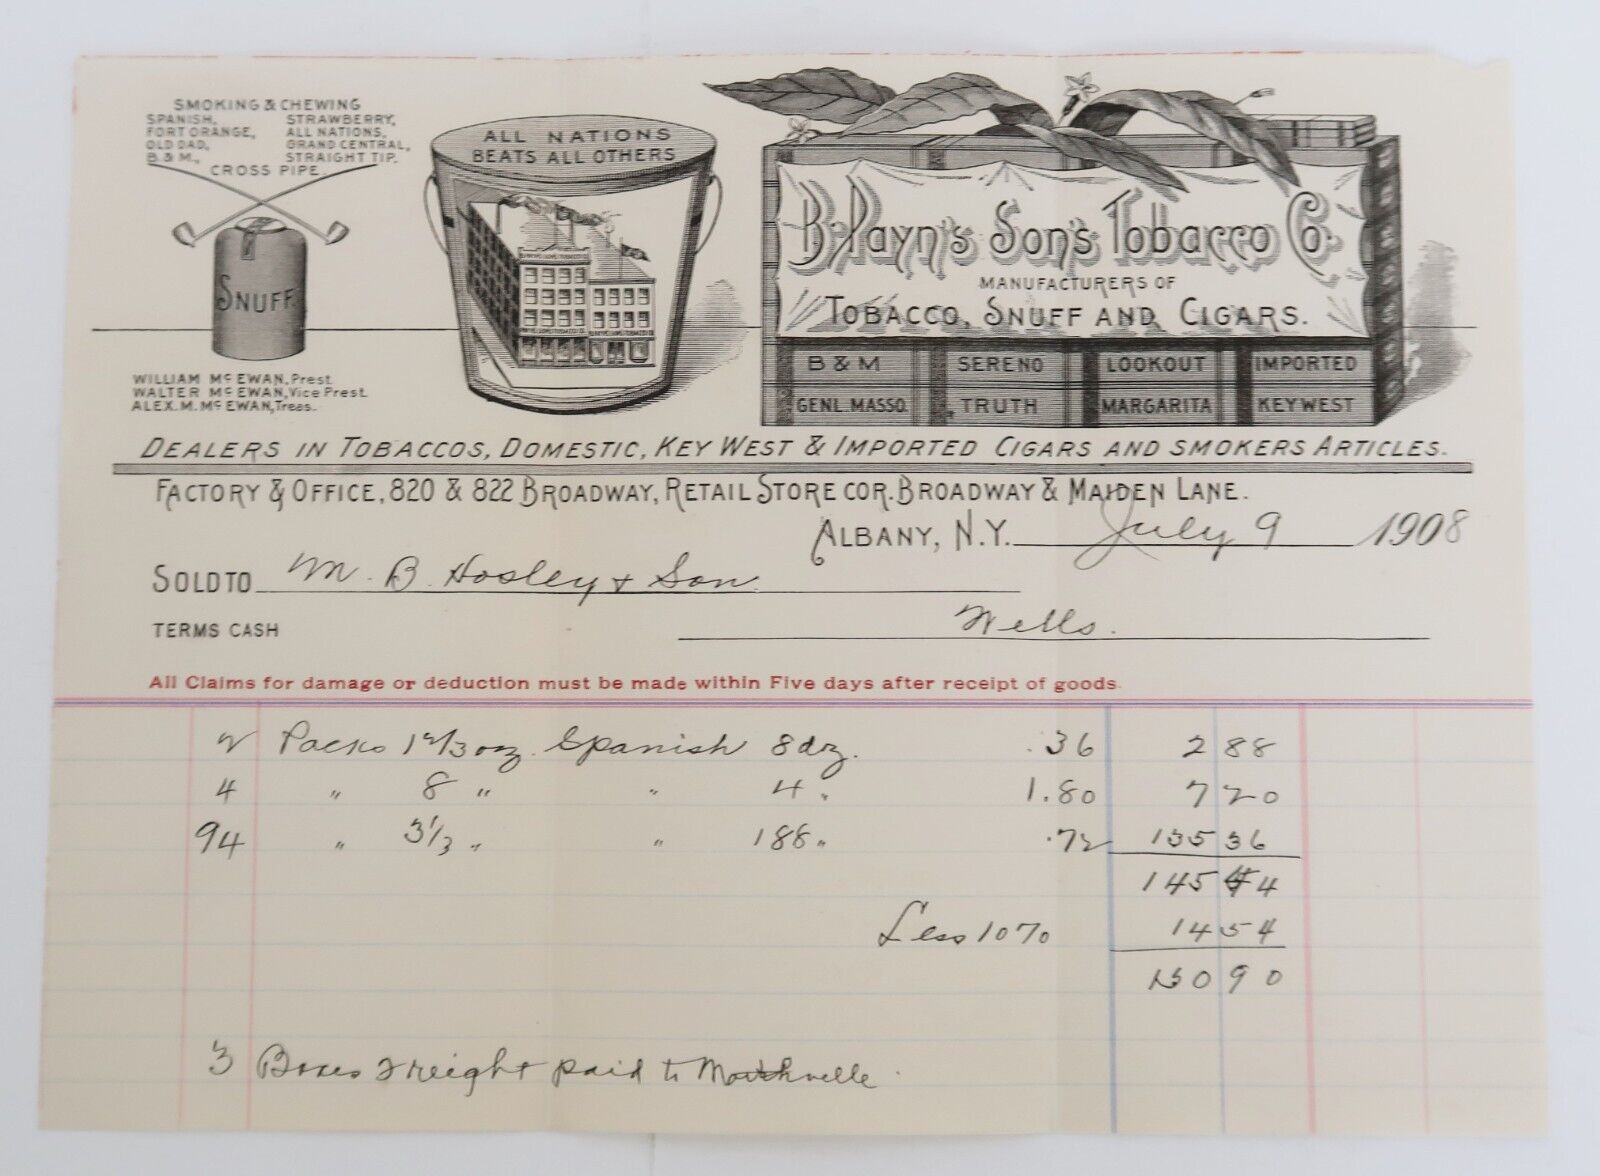 SMOKING & CHEWING
SPANISH, STRAWBERRY,
FORT ORANGE, ALL NATIONS,
OLD DAD, GRAND CENTRAL,
B & M., STRAIGHT TIP.
CROSS PIPE.
SNUFF
WILLIAM McEWAN, Prest.
WALTER McEWAN, Vice Prest.
ALEX. M. McEWAN, Treas.
ALL NATIONS
BEATS ALL OTHERS
B. Payn's Son's Tobacco Co.
MANUFACTURERS OF
TOBACCO, SNUFF AND CIGARS.
B & M SERENO LOOKOUT IMPORTED
GENL. MASSO. TRUTH MARGARITA KEY WEST
DEALERS IN TOBACCOS, DOMESTIC, KEY WEST & IMPORTED CIGARS AND SMOKERS ARTICLES.
FACTORY & OFFICE, 820 & 822 BROADWAY, RETAIL STORE COR. BROADWAY & MAIDEN LANE.
ALBANY, N.Y. July 9 1908
SOLD TO M. B. Hosley & Son
TERMS CASH Wells.
All Claims for damage or deduction must be made within Five days after receipt of goods.
2 Packs 1 2/3 oz. Spanish 8 dz. .36 2 88
4 " 8 " " 4 " 1.80 7 20
94 " 3 1/3 " " 188 " .72 135 36
145 44
Less 10% 14 54
130 90
3 Boxes Freight paid to Northville